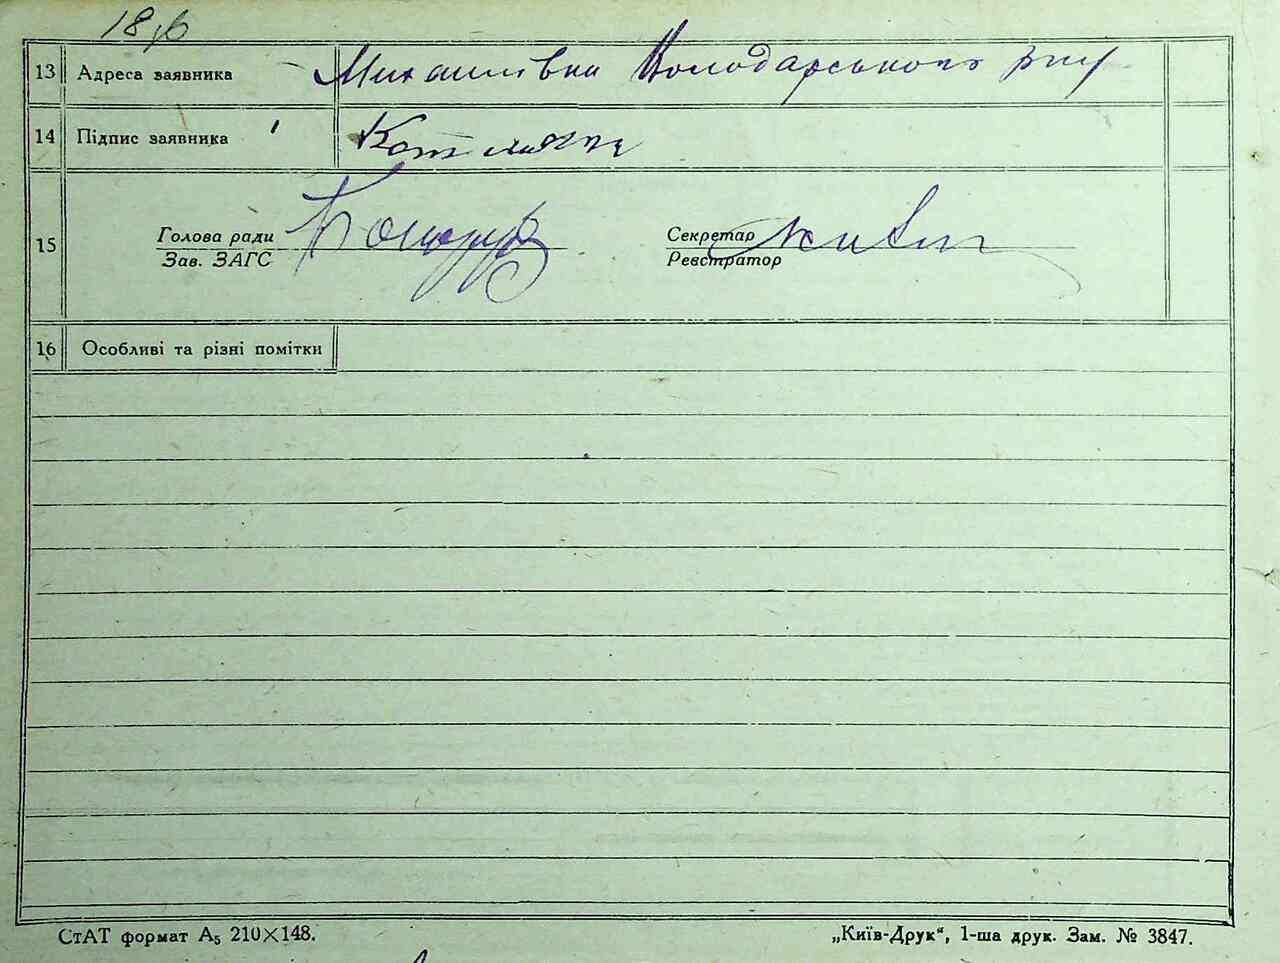 13 Адреса заявника Михайлівка Володарського р-ну
14 Підпис заявника
15 Голова ради Секретар
Зав. ЗАГС Реєстратор
16 Особливі та різні помітки
СтАТ формат А₅ 210×148. „Київ-Друк“, 1-ша друк. Зам. № 3847.